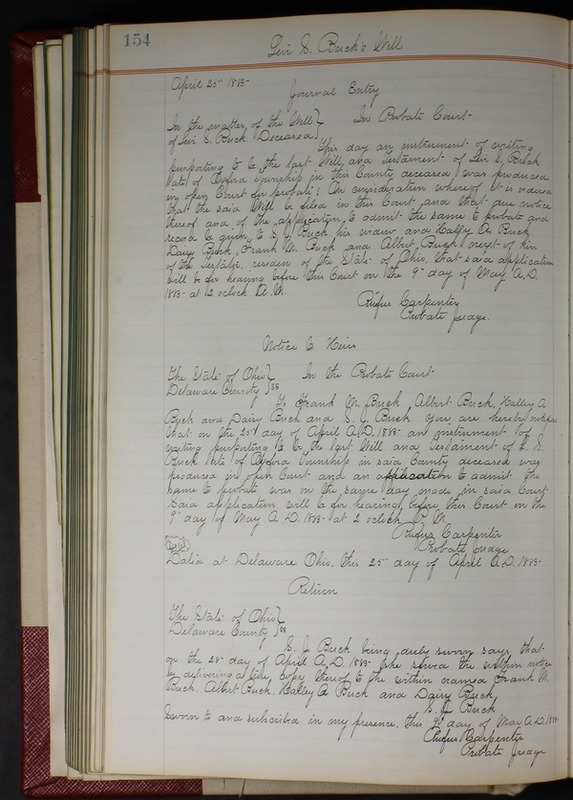 154
Levi S. Buck's Will
April 25" 1885-
Journal Entry
In the matter of the Will } In Probate Court-
of Levi S. Buck Deceased }
This day an instrument of writing
purporting to be the last Will and Testament of Levi S. Buck
late of township in this County deceased, was produced
in open Court for probate; On consideration whereof it is ordered
that the said Will be filed in this Court and that due notice
thereof and of the application to admit the same to probate and
record be given to S. J. Buck his widow and Halley A. Buck
Daisy Buck, Frank M. Buck and Albert Buck next of kin
of the Testator, residen of the State of Ohio, that said application
will be for hearing before this Court on the 9" day of May A.D.
1885- at 2 oclock P. M.
Rufus Carpenter
Probate Judge.
Notice to Heirs
The State of Ohio } In the Probate Court-
Delaware County } SS
To Frank M. Buck, Albert Buck, Halley A
Buck and Daisy Buck and S. J. Buck You are hereby notified
that on the 25" day of April A.D. 1885- an instrument of
writing purporting to be the last Will and Testament of L. S.
Buck late of Township in said County deceased was
produced in open Court and an application to admit the
same to probate was on the same day made in said Court
Said application will be for hearing before this Court on the
9" day of May A. D. 1885- at 2 oclock P. M.
Rufus Carpenter
Seal Probate Judge
Dated at Delaware Ohio, this 25" day of April A.D. 1885-
Return
The State of Ohio }
Delaware County } SS
S. J. Buck being duly sworn says that
on the 28" day of April A.D. 1885- she served the within notice
by delivering a true copy thereof to the within named Frank M.
Buck. Albert Buck. Halley A Buck and Daisy Buck
S. J. Buck
Sworn to and subscribed in my presence, this 9" day of May A.D. 1885-
Rufus Carpenter
Probate Judge